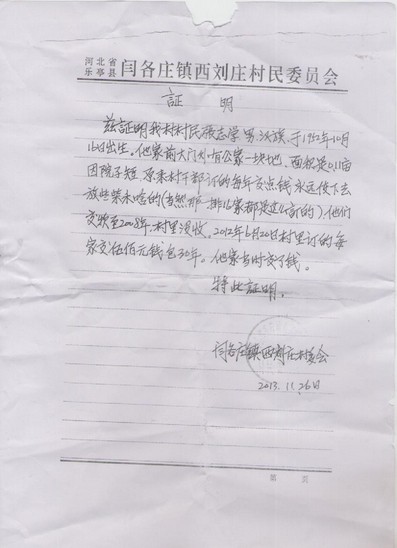 河北省
乐亭县 闫各庄镇西刘庄村民委员会
証明
兹証明我村村民张志学 男 汉族,于1952年10月
16日出生。他家前大门外有公寨一块地,面积是0.11亩
因院子短,原来村干部订的每年交点钱永远使下去
放些柴木啥的(当然那一排 家都是这么订的),他们
交款至2008年,村里没收。2012年6月20日村里订的每
家交伍佰元钱包30年。他家当时交了钱。
特此証明。
闫各庄镇西刘庄村委会
2013.11.26日
第 页